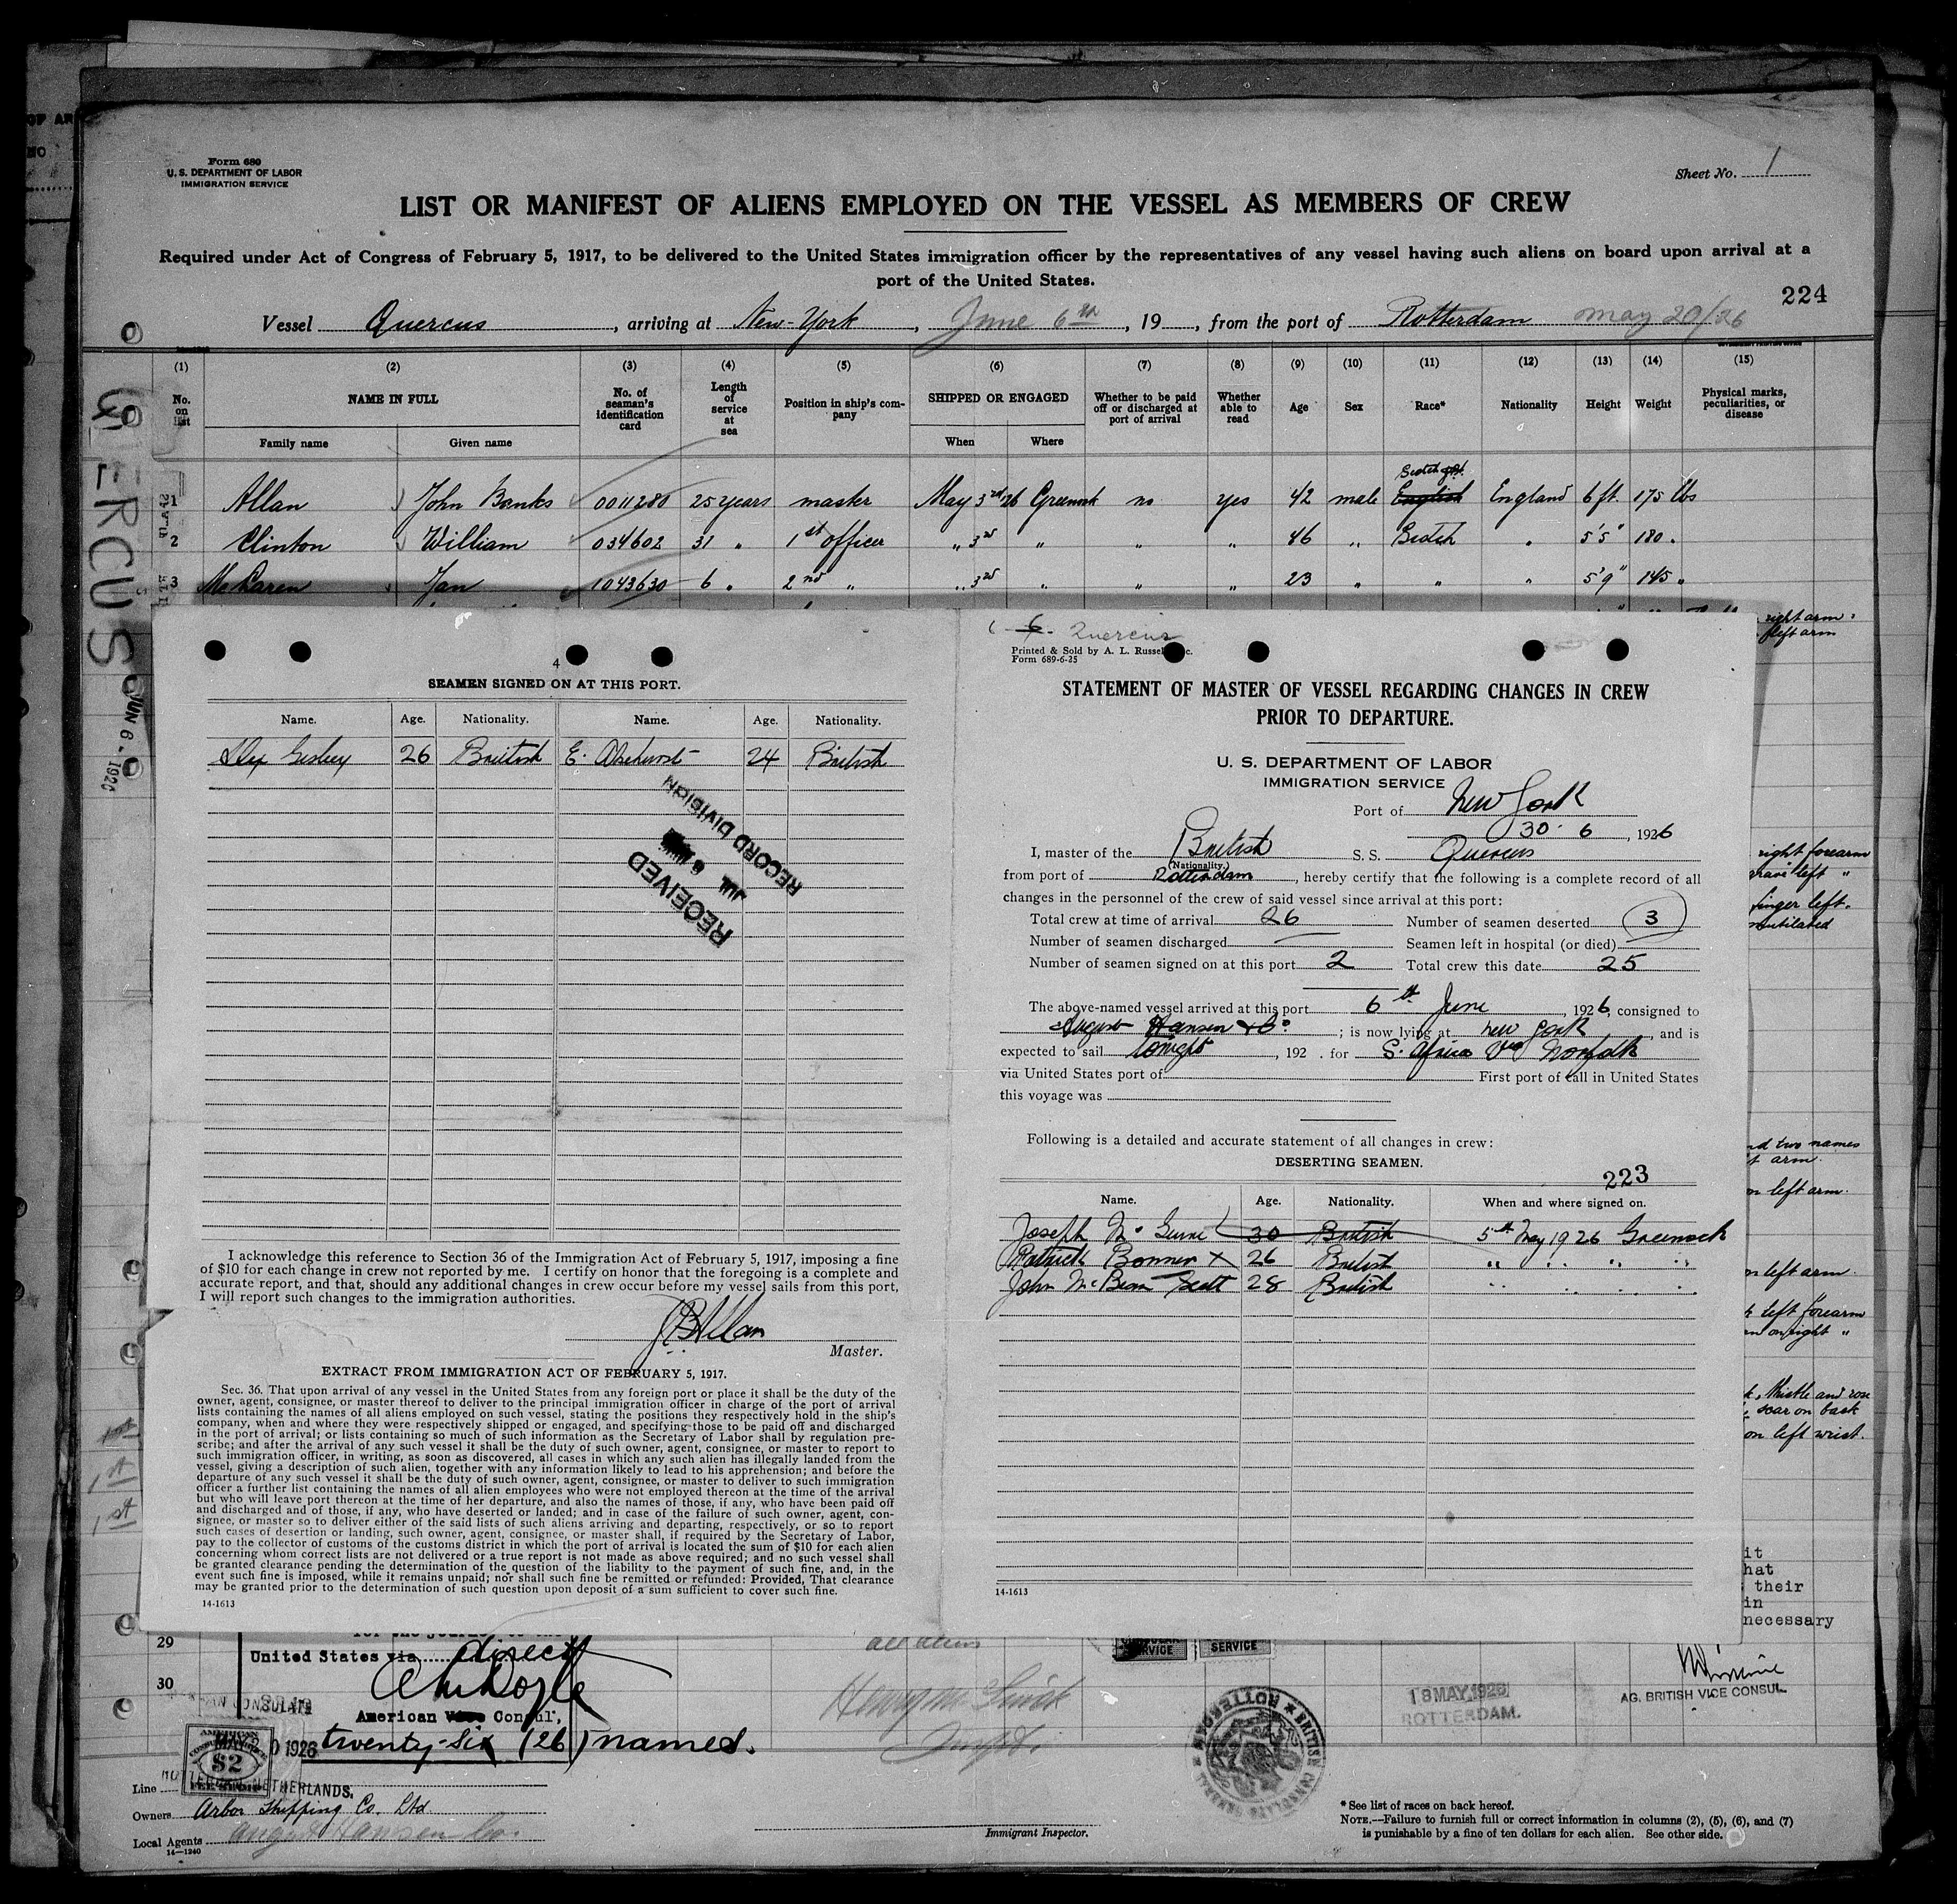 OF AR
NO
Form 680
U. S. DEPARTMENT OF LABOR
IMMIGRATION SERVICE
Sheet No. 1
LIST OR MANIFEST OF ALIENS EMPLOYED ON THE VESSEL AS MEMBERS OF CREW
Required under Act of Congress of February 5, 1917, to be delivered to the United States immigration officer by the representatives of any vessel having such aliens on board upon arrival at a
port of the United States.
224
Vessel Quercus, arriving at New-York, June 6th, 19, from the port of Rotterdam May 20/26
(1) (2) (3) (4) (5) (6) (7) (8) (9) (10) (11) (12) (13) (14) (15)
No. on list
NAME IN FULL
Family name Given name
No. of seaman's identification card
Length of service at sea
Position in ship's company
SHIPPED OR ENGAGED
When Where
Whether to be paid off or discharged at port of arrival
Whether able to read
Age
Sex
Race*
Nationality
Height
Weight
Physical marks, peculiarities, or disease
Scotch
1 Allan John Banks 0011280 25 years master May 3rd 26 Greenock no yes 42 male English England 6 ft. 175 lbs
2 Clinton William 034602 31 " 1st officer " 3rd " " " 46 " Scotch " 5'5" 180 "
3 McLaren Ian 1043630 6 " 2nd " " 3rd " " " 23 " " " 5'9" 145 "
QUERCUS
JUN 6 - 1926
right arm
left arm
right forearm
left "
finger left
mutilated
two names
arm.
left arm.
left arm.
left forearm
on right "
thistle and rose
scar on back
on left wrist.
it
hat
their
in
necessary
4
SEAMEN SIGNED ON AT THIS PORT.
Name. Age. Nationality. Name. Age. Nationality.
Alex 26 British E. 24 British
RECORD DIVISION
JUL 6
RECEIVED
I acknowledge this reference to Section 36 of the Immigration Act of February 5, 1917, imposing a fine
of $10 for each change in crew not reported by me. I certify on honor that the foregoing is a complete and
accurate report, and that, should any additional changes in crew occur before my vessel sails from this port,
I will report such changes to the immigration authorities.
J B Allan
Master.
EXTRACT FROM IMMIGRATION ACT OF FEBRUARY 5, 1917.
Sec. 36. That upon arrival of any vessel in the United States from any foreign port or place it shall be the duty of the
owner, agent, consignee, or master thereof to deliver to the principal immigration officer in charge of the port of arrival
lists containing the names of all aliens employed on such vessel, stating the positions they respectively hold in the ship's
company, when and where they were respectively shipped or engaged, and specifying those to be paid off and discharged
in the port of arrival; or lists containing so much of such information as the Secretary of Labor shall by regulation pre-
scribe; and after the arrival of any such vessel it shall be the duty of such owner, agent, consignee, or master to report to
such immigration officer, in writing, as soon as discovered, all cases in which any such alien has illegally landed from the
vessel, giving a description of such alien, together with any information likely to lead to his apprehension; and before the
departure of any such vessel it shall be the duty of such owner, agent, consignee, or master to deliver to such immigration
officer a further list containing the names of all alien employees who were not employed thereon at the time of the arrival
but who will leave port thereon at the time of her departure, and also the names of those, if any, who have been paid off
and discharged and of those, if any, who have deserted or landed; and in case of the failure of such owner, agent, con-
signee, or master so to deliver either of the said lists of such aliens arriving and departing, respectively, or so to report
such cases of desertion or landing, such owner, agent, consignee, or master shall, if required by the Secretary of Labor,
pay to the collector of customs of the customs district in which the port of arrival is located the sum of $10 for each alien
concerning whom correct lists are not delivered or a true report is not made as above required; and no such vessel shall
be granted clearance pending the determination of the question of the liability to the payment of such fine, and, in the
event such fine is imposed, while it remains unpaid; nor shall such fine be remitted or refunded: Provided, That clearance
may be granted prior to the determination of such question upon deposit of a sum sufficient to cover such fine.
14-1613
6 Quercus
Printed & Sold by A. L. Russel c.
Form 689-6-25
STATEMENT OF MASTER OF VESSEL REGARDING CHANGES IN CREW
PRIOR TO DEPARTURE.
U. S. DEPARTMENT OF LABOR
IMMIGRATION SERVICE
Port of New York
30 . 6, 1926
I, master of the British S. S. Quercus
(Nationality.)
from port of Rotterdam, hereby certify that the following is a complete record of all
changes in the personnel of the crew of said vessel since arrival at this port:
Total crew at time of arrival 26 Number of seamen deserted 3
Number of seamen discharged Seamen left in hospital (or died)
Number of seamen signed on at this port 2 Total crew this date 25
The above-named vessel arrived at this port 6th June, 1926, consigned to
August Hansen & Co; is now lying at New York, and is
expected to sail Tonight, 192 . for S. Africa Via Norfolk
via United States port of First port of call in United States
this voyage was
Following is a detailed and accurate statement of all changes in crew:
DESERTING SEAMEN.
223
Name. Age. Nationality. When and where signed on.
Joseph Mc 30 British 5th May 1926 Greenock
Patrick Bonner x 26 British " " " "
John Mc Bean Scott 28 British " " " "
14-1613
1st
1st
1st
29
30
United States via direct
American Vice Consul,
CONSULATE
AMERICAN
$2
1926
twenty-six (26) names.
NETHERLANDS.
all aliens
SERVICE
SERVICE
ROTTERDAM * BRITISH CONSULATE GENERAL *
18 MAY 1926
ROTTERDAM.
AG. BRITISH VICE CONSUL.
Line
Owners Arbor Shipping Co. Ltd
Local Agents August Hansen Co.
14-1240
Immigrant Inspector.
* See list of races on back hereof.
NOTE.—Failure to furnish full or correct information in columns (2), (5), (6), and (7)
is punishable by a fine of ten dollars for each alien. See other side.